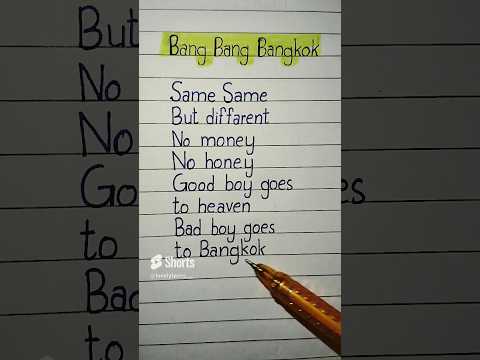 Bang Bang Bangkok
Same Same
But diffarent
No money
No honey
Good boy goes
to heaven
Bad boy goes
to Bangkok
Shorts